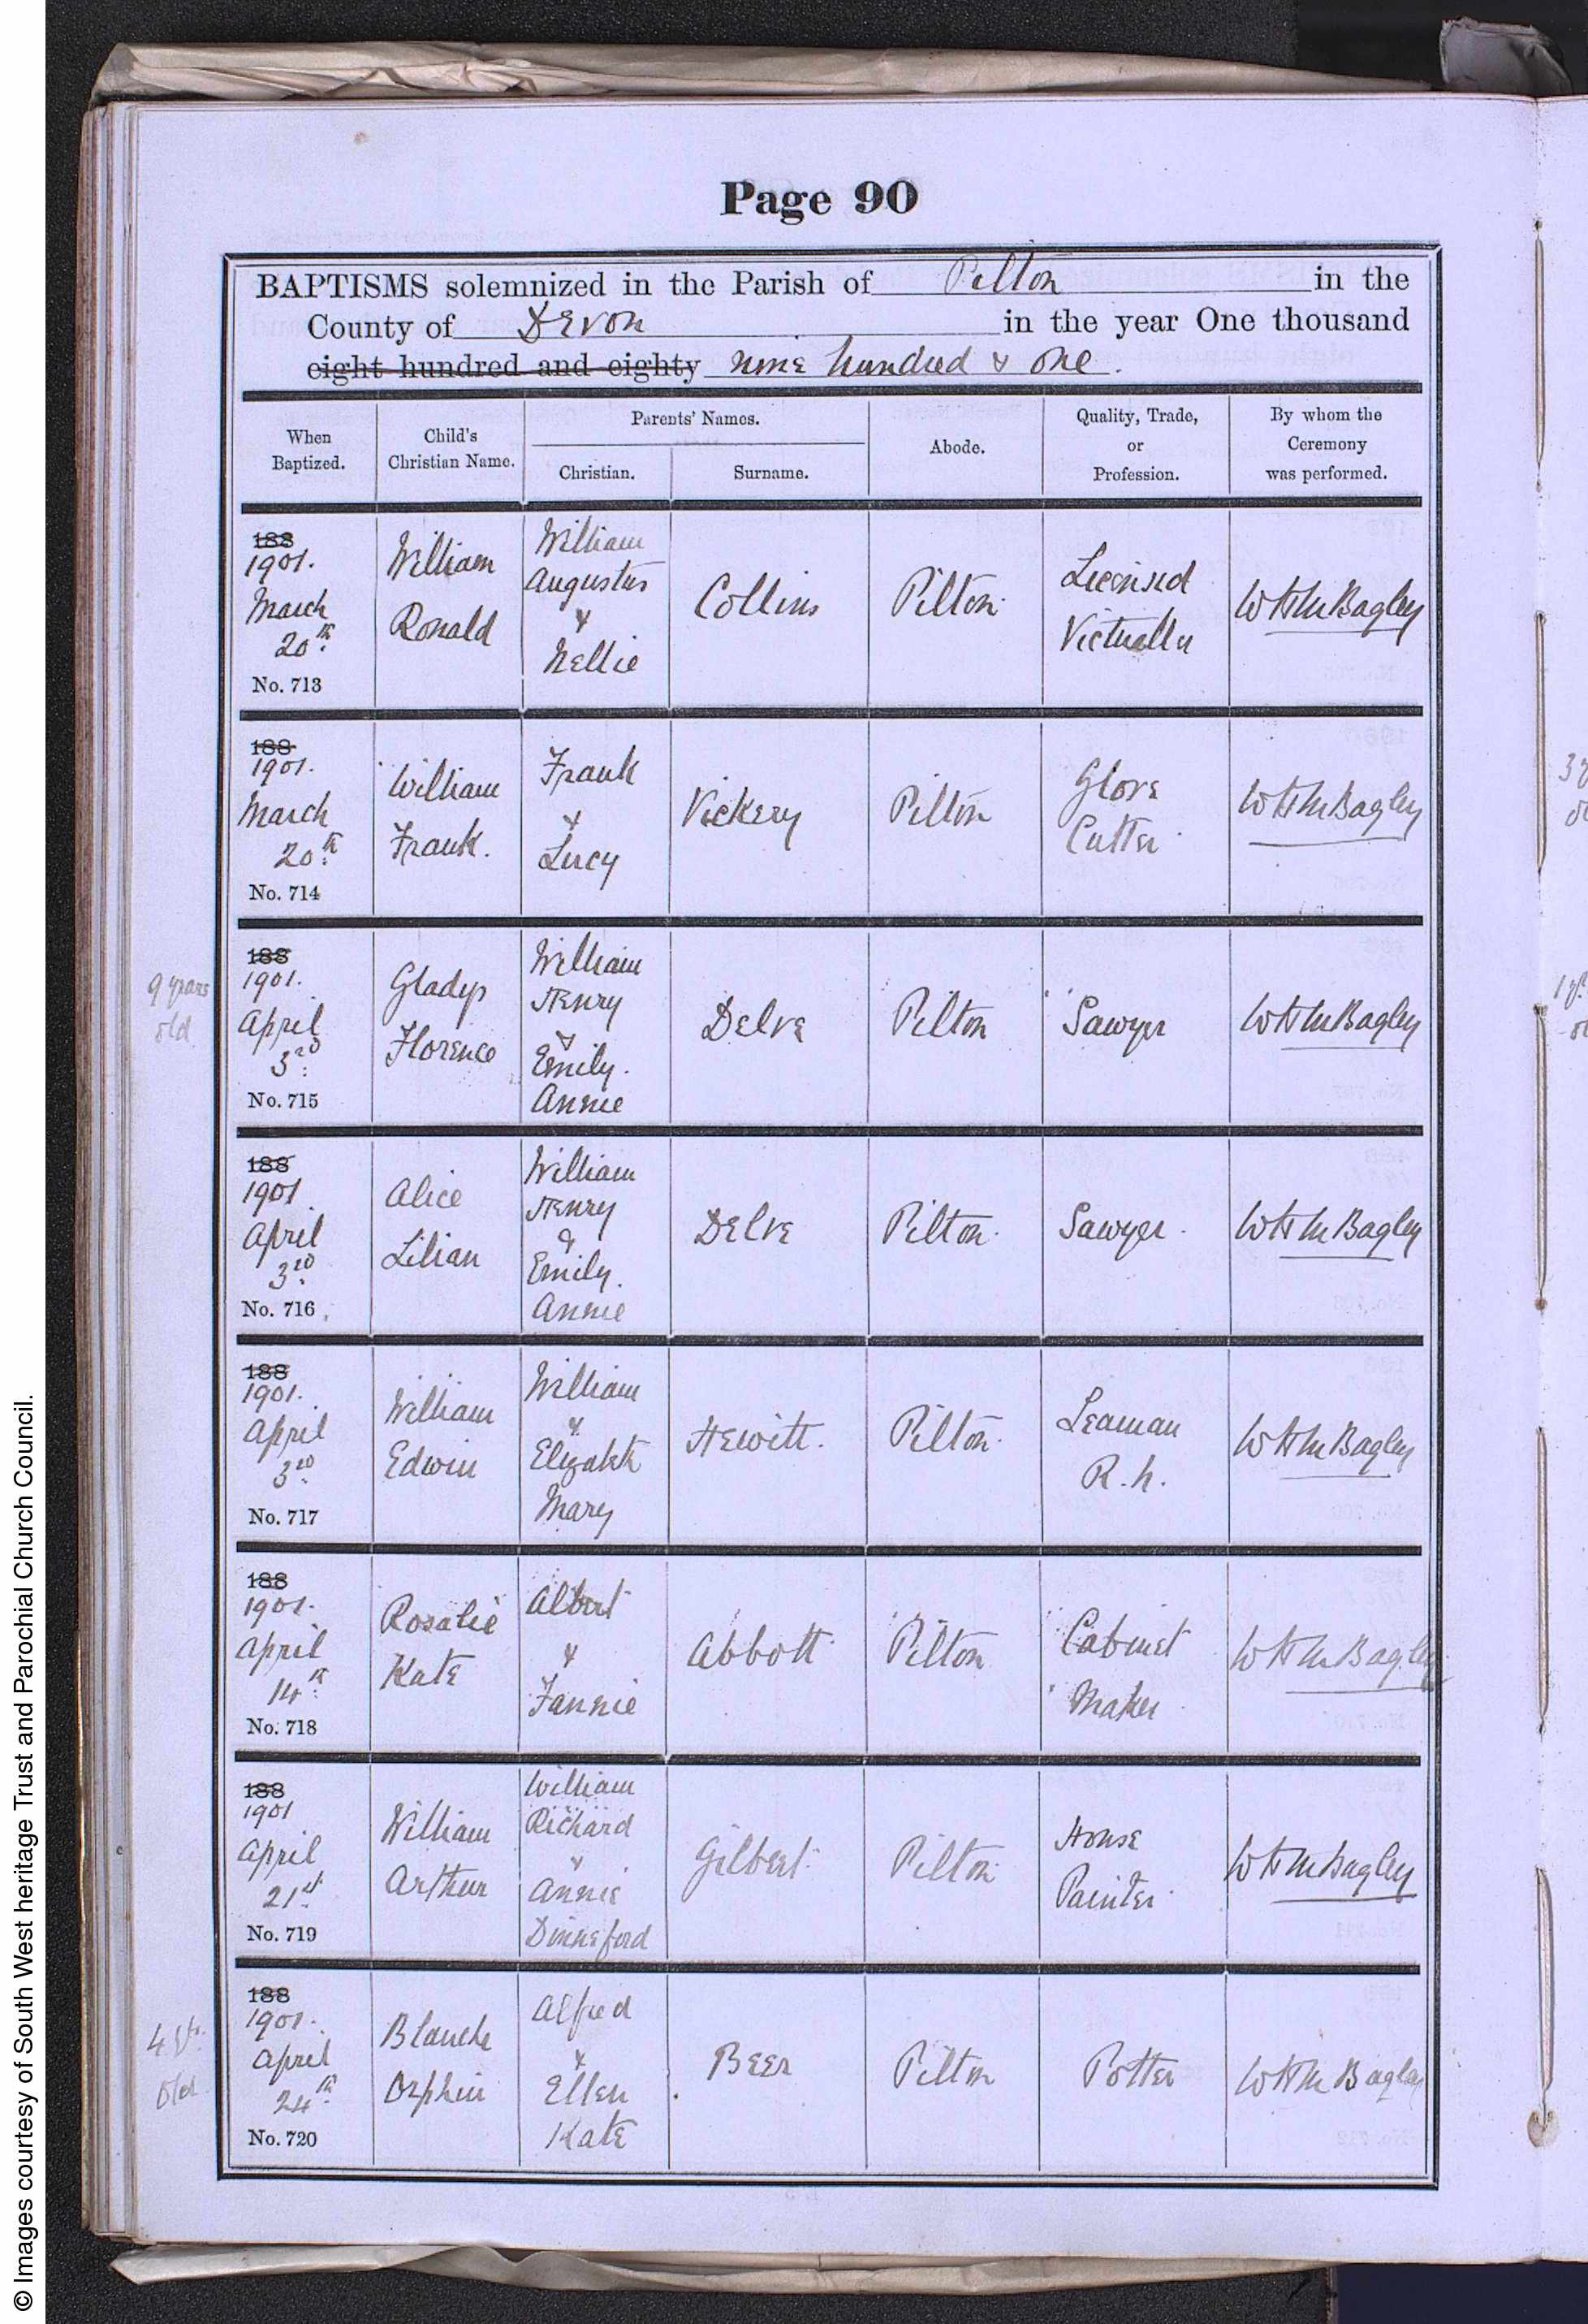 Page 90
BAPTISMS solemnized in the Parish of Pilton in the
County of Devon in the year One thousand
eight hundred and eighty nine hundred & one.
When Baptized.
Child's Christian Name.
Parents' Names.
Christian.
Surname.
Abode.
Quality, Trade, or Profession.
By whom the Ceremony was performed.
188
1901.
March
20th
No. 713
William
Ronald
William
Augustus
&
Nellie
Collins
Pilton
Licensed
Victualler
W H M Bagley
188
1901.
March
20th
No. 714
William
Frank.
Frank
&
Lucy
Vickery
Pilton
Glove
Cutter
W H M Bagley
9 years
old
188
1901.
April
3rd
No. 715
Gladys
Florence
William
Henry
&
Emily.
Annie
Delve
Pilton
Sawyer
W H M Bagley
188
1901
April
3rd
No. 716
Alice
Lilian
William
Henry
&
Emily.
Annie
Delve
Pilton
Sawyer
W H M Bagley
188
1901.
April
3rd
No. 717
William
Edwin
William
&
Elizabth
Mary
Hewitt.
Pilton
Seaman
R.N.
W H M Bagley
188
1901.
April
14th
No. 718
Rosalie
Kate
Albert
&
Fannie
Abbott
Pilton
Cabinet
Maker
W H M Bagley
188
1901
April
21st
No. 719
William
Arthur
William
Richard
&
Annie
Dinneford
Gilbert
Pilton
House
Painter
W H M Bagley
4 yrs.
old
188
1901.
April
24th
No. 720
Blanche
Orphin
Alfred
&
Ellen
Kate
Beer
Pilton
Potter
W H M Bagley
© Images courtesy of South West heritage Trust and Parochial Church Council.